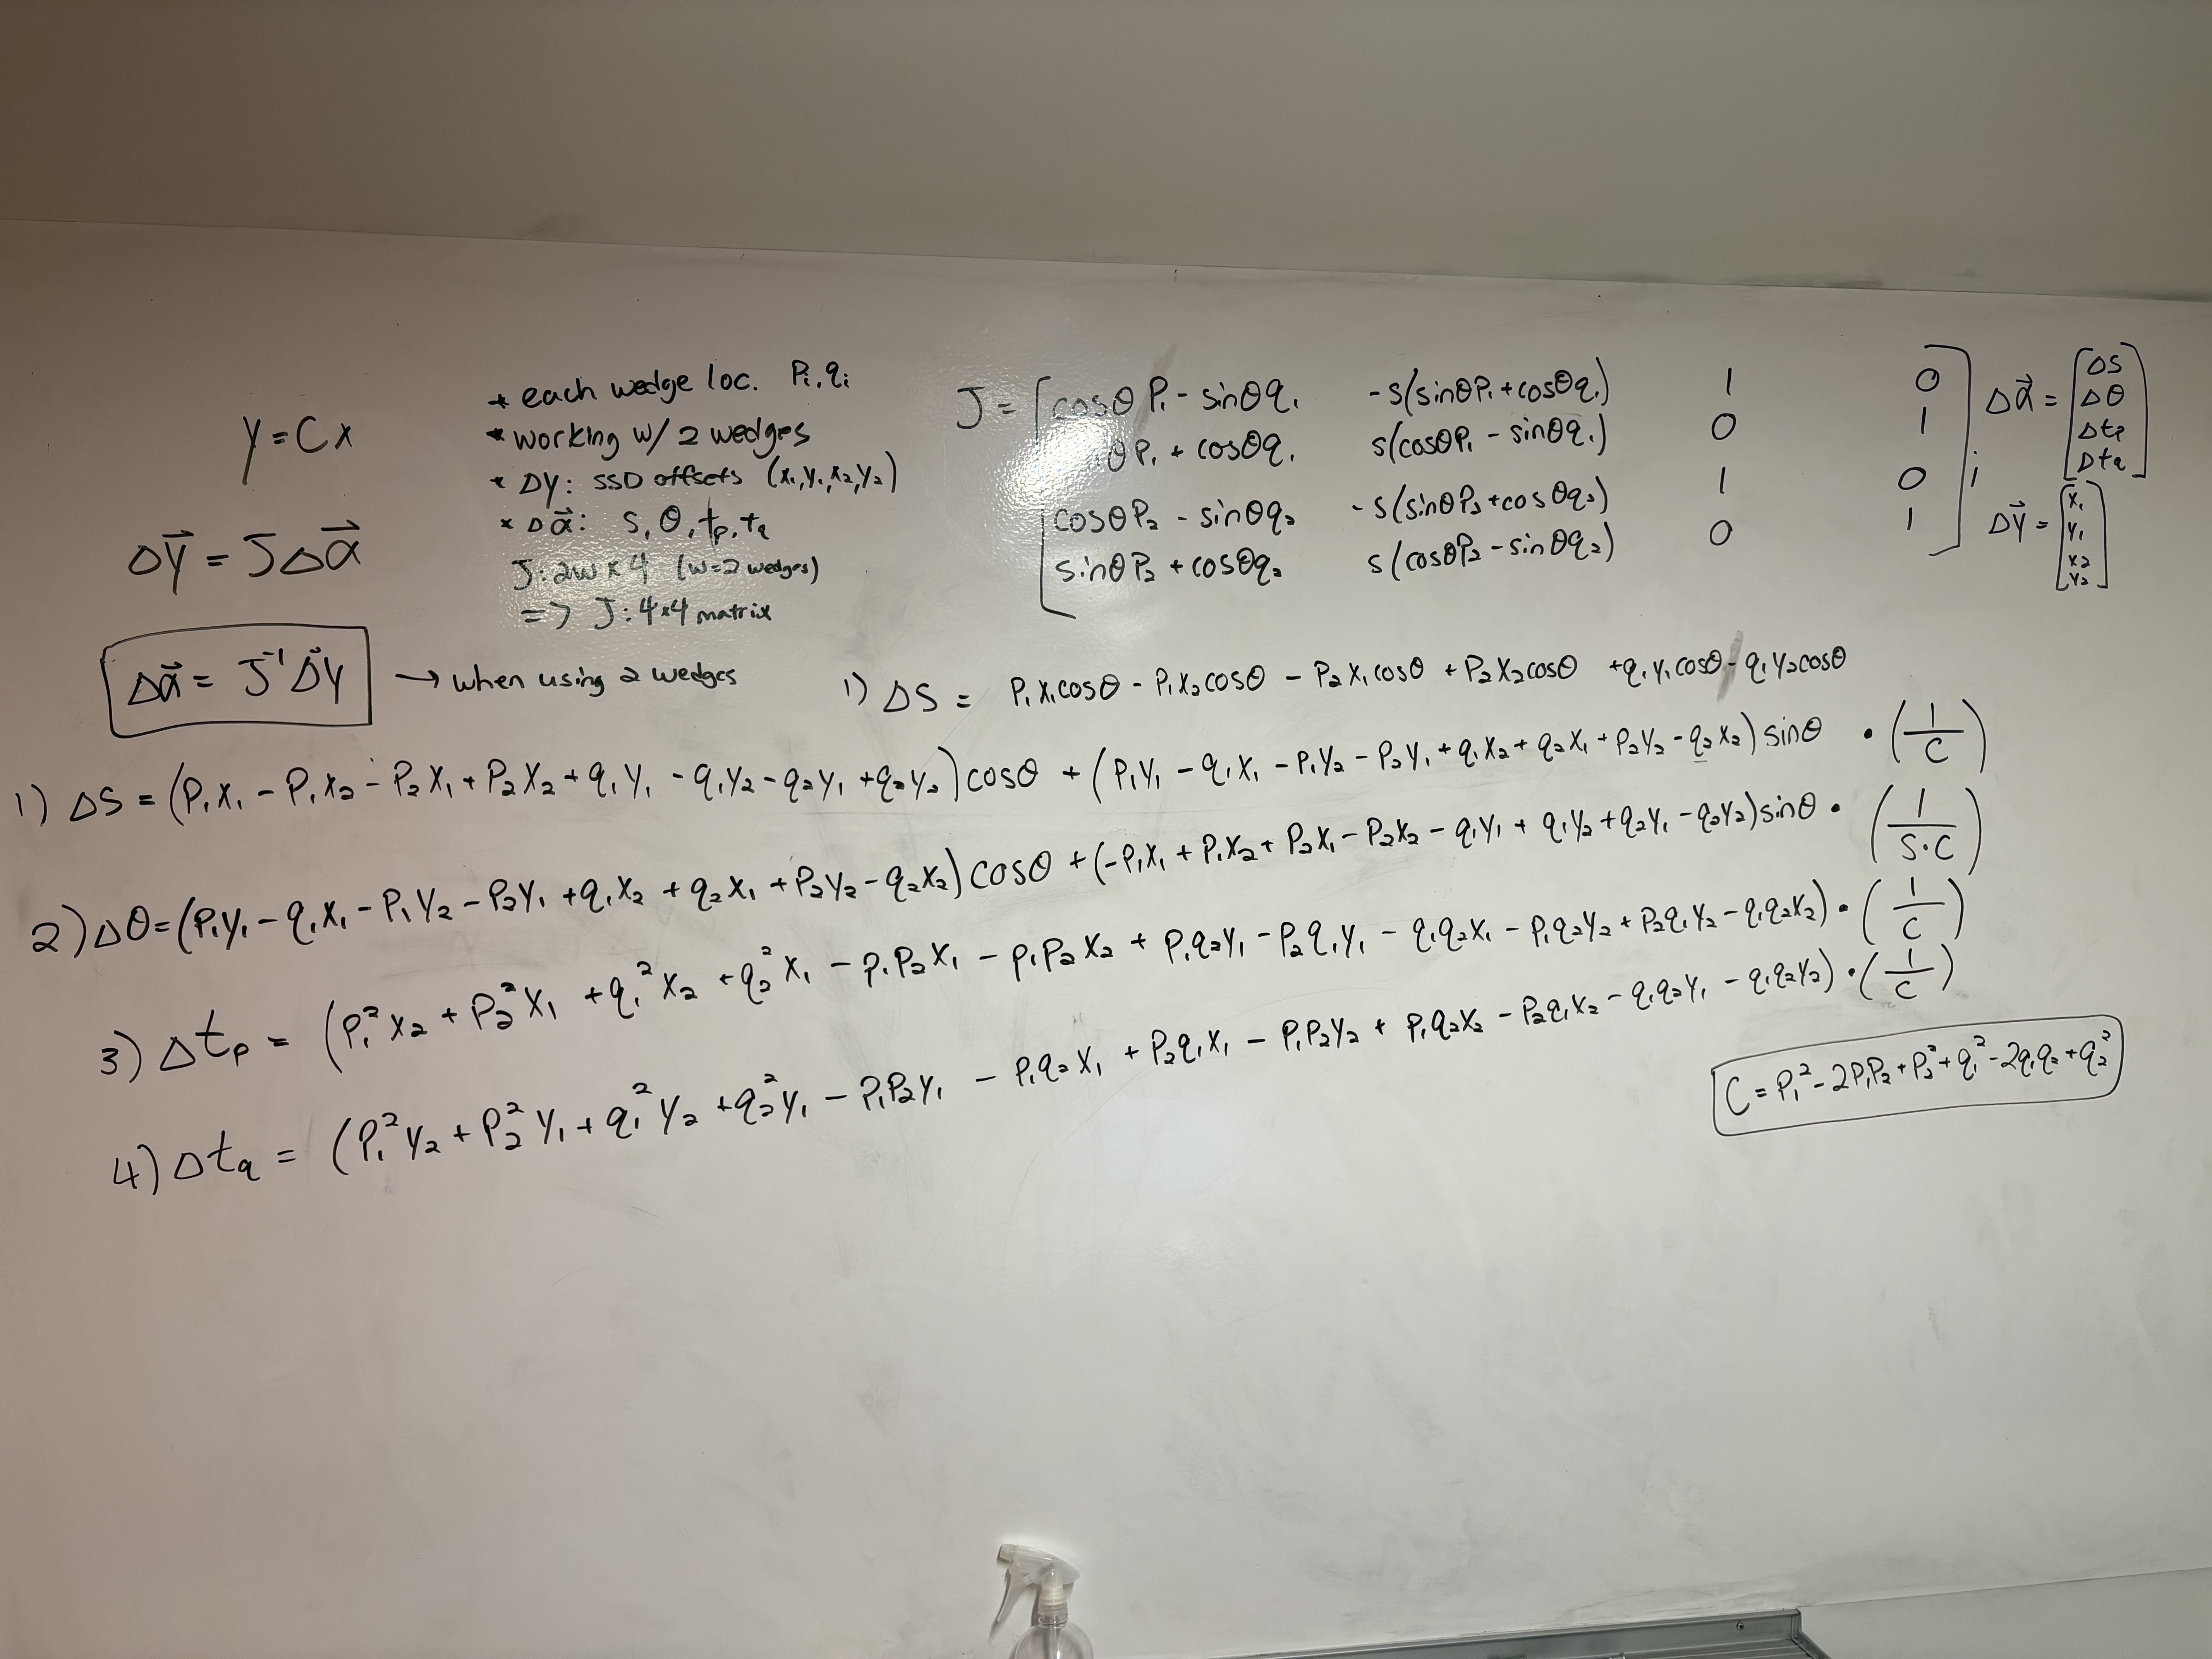 y = Cx
Δy⃗ = JΔα⃗
Δα⃗ = J⁻¹Δy⃗ → when using 2 wedges
* each wedge loc. Pᵢ, qᵢ
* working w/ 2 wedges
* Δy: SSD offsets (x₁,y₁,x₂,y₂)
* Δα⃗: s, θ, tₚ, t_q
J: 2w×4 (w=2 wedges)
=> J: 4×4 matrix
J = [ cosθP₁ - sinθq₁   -s(sinθP₁+cosθq₁)   1   0
θP₁ + cosθq₁   s(cosθP₁ - sinθq₁)   0   1
cosθP₂ - sinθq₂   -s(sinθP₂+cosθq₂)   1   0
sinθP₂ + cosθq₂   s(cosθP₂ - sinθq₂)   0   1 ] ;
Δα⃗ = [ΔS
Δθ
Δtₚ
Δt_q]
Δy⃗ = [x₁
y₁
x₂
y₂]
1) ΔS = P₁x₁cosθ - P₁x₂cosθ - P₂x₁cosθ + P₂x₂cosθ + q₁y₁cosθ - q₁y₂cosθ
1) ΔS = (P₁x₁ - P₁x₂ - P₂x₁ + P₂x₂ + q₁y₁ - q₁y₂ - q₂y₁ + q₂y₂)cosθ + (P₁y₁ - q₁x₁ - P₁y₂ - P₂y₁ + q₁x₂ + q₂x₁ + P₂y₂ - q₂x₂)sinθ • (1/C)
2) Δθ = (P₁y₁ - q₁x₁ - P₁y₂ - P₂y₁ + q₁x₂ + q₂x₁ + P₂y₂ - q₂x₂)cosθ + (-P₁x₁ + P₁x₂ + P₂x₁ - P₂x₂ - q₁y₁ + q₁y₂ + q₂y₁ - q₂y₂)sinθ • (1/S•C)
3) Δtₚ = (P₁²x₂ + P₂²x₁ + q₁²x₂ + q₂²x₁ - P₁P₂x₁ - P₁P₂x₂ + P₁q₂y₁ - P₂q₁y₁ - q₁q₂x₁ - P₁q₂y₂ + P₂q₁y₂ - q₁q₂x₂) • (1/C)
4) Δt_q = (P₁²y₂ + P₂²y₁ + q₁²y₂ + q₂²y₁ - P₁P₂y₁ - P₁q₂x₁ + P₂q₁x₁ - P₁P₂y₂ + P₁q₂x₂ - P₂q₁x₂ - q₁q₂y₁ - q₁q₂y₂) • (1/C)
C = P₁² - 2P₁P₂ + P₂² + q₁² - 2q₁q₂ + q₂²